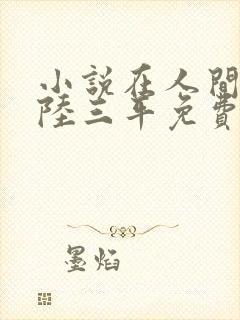 小說在人間
陸三年免費
墨焰